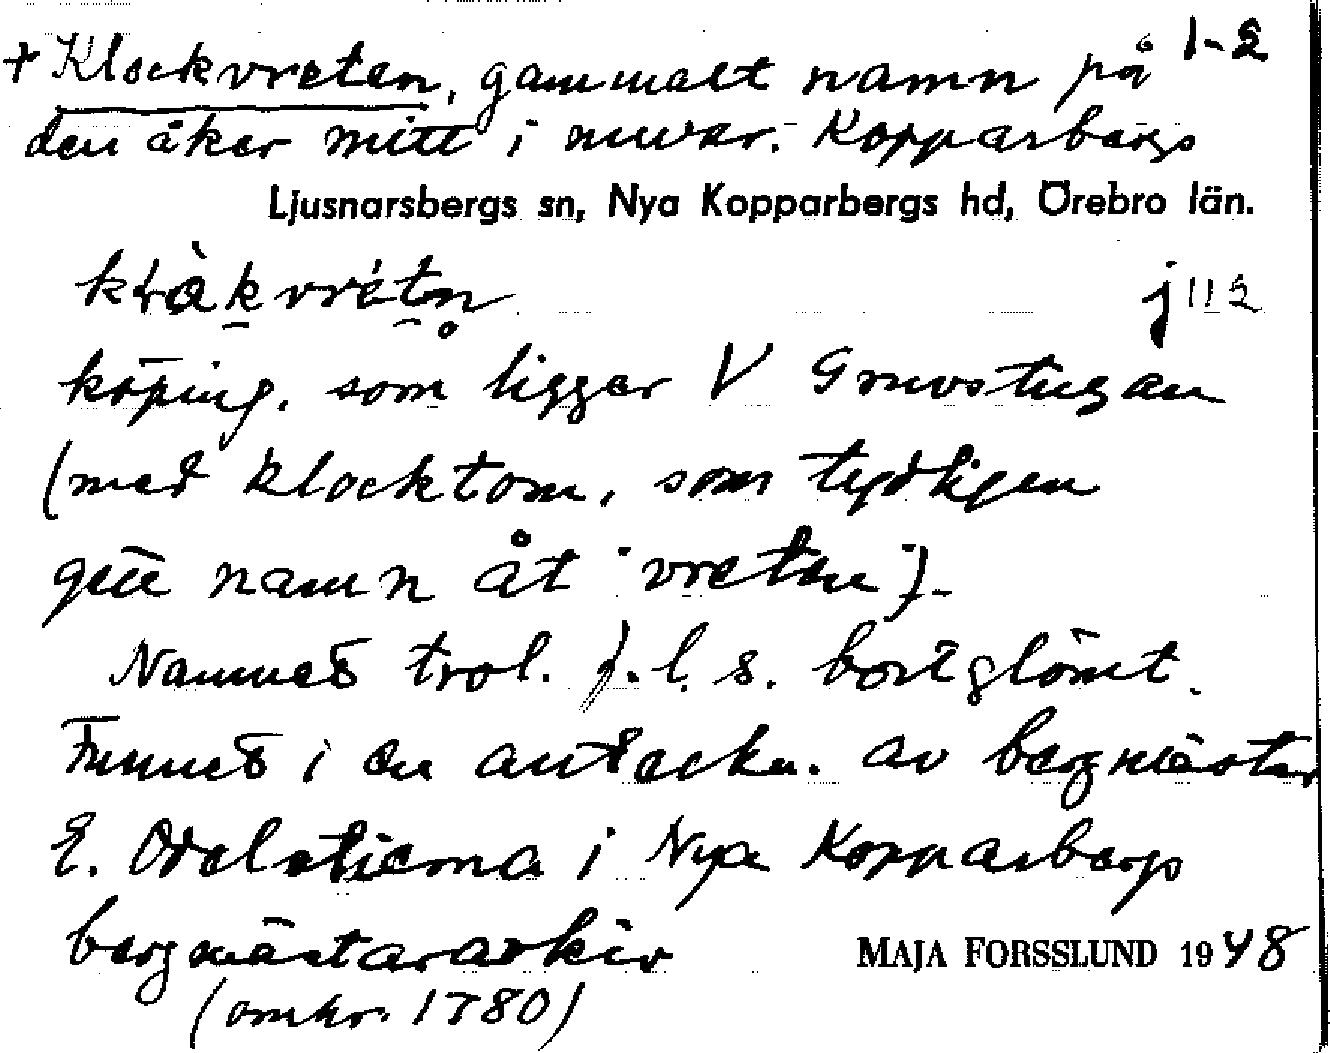 + Klockvreten, gammalt namn på 1-2
den åker mitt i nuvar. Kopparbergs
Ljusnarsbergs sn, Nya Kopparbergs hd, Örebro län.
j 112
köping, som ligger V Gruvstugan
(med klocktorn, som tydligen
gett namn åt vreten).
Namnet trol. f.l.s. bortglömt.
Funnet i en anteckn. av bergmästar
E. Odelstierna i Nya Kopparbergs
bergmästararkiv
MAJA FORSSLUND 1948
(omkr. 1780)